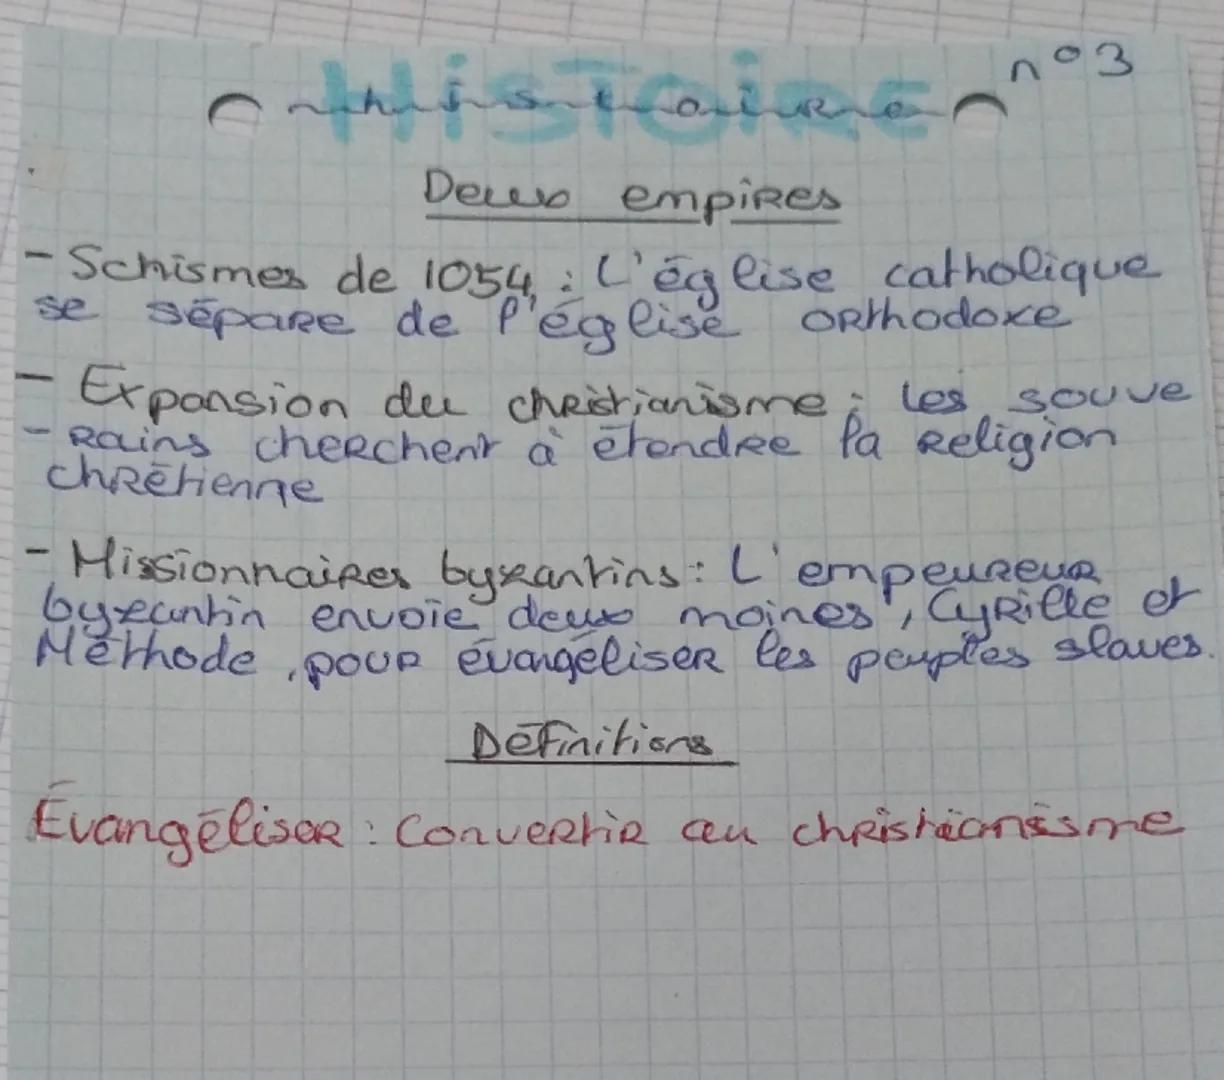 HISTOIRE n°3
histoire
Deux empires
- Schismes de 1054 : L'église catholique
se sépare de l'église orthodoxe
- Expansion du christianisme : les souve
- rains cherchent à étendre la religion
chrétienne
- Missionnaires byzantins : L'empeureur
byzantin envoie deux moines, Cyrille et
Méthode, pour évangéliser les peuples slaves.
Définitions
Évangéliser : Convertir au christianisme